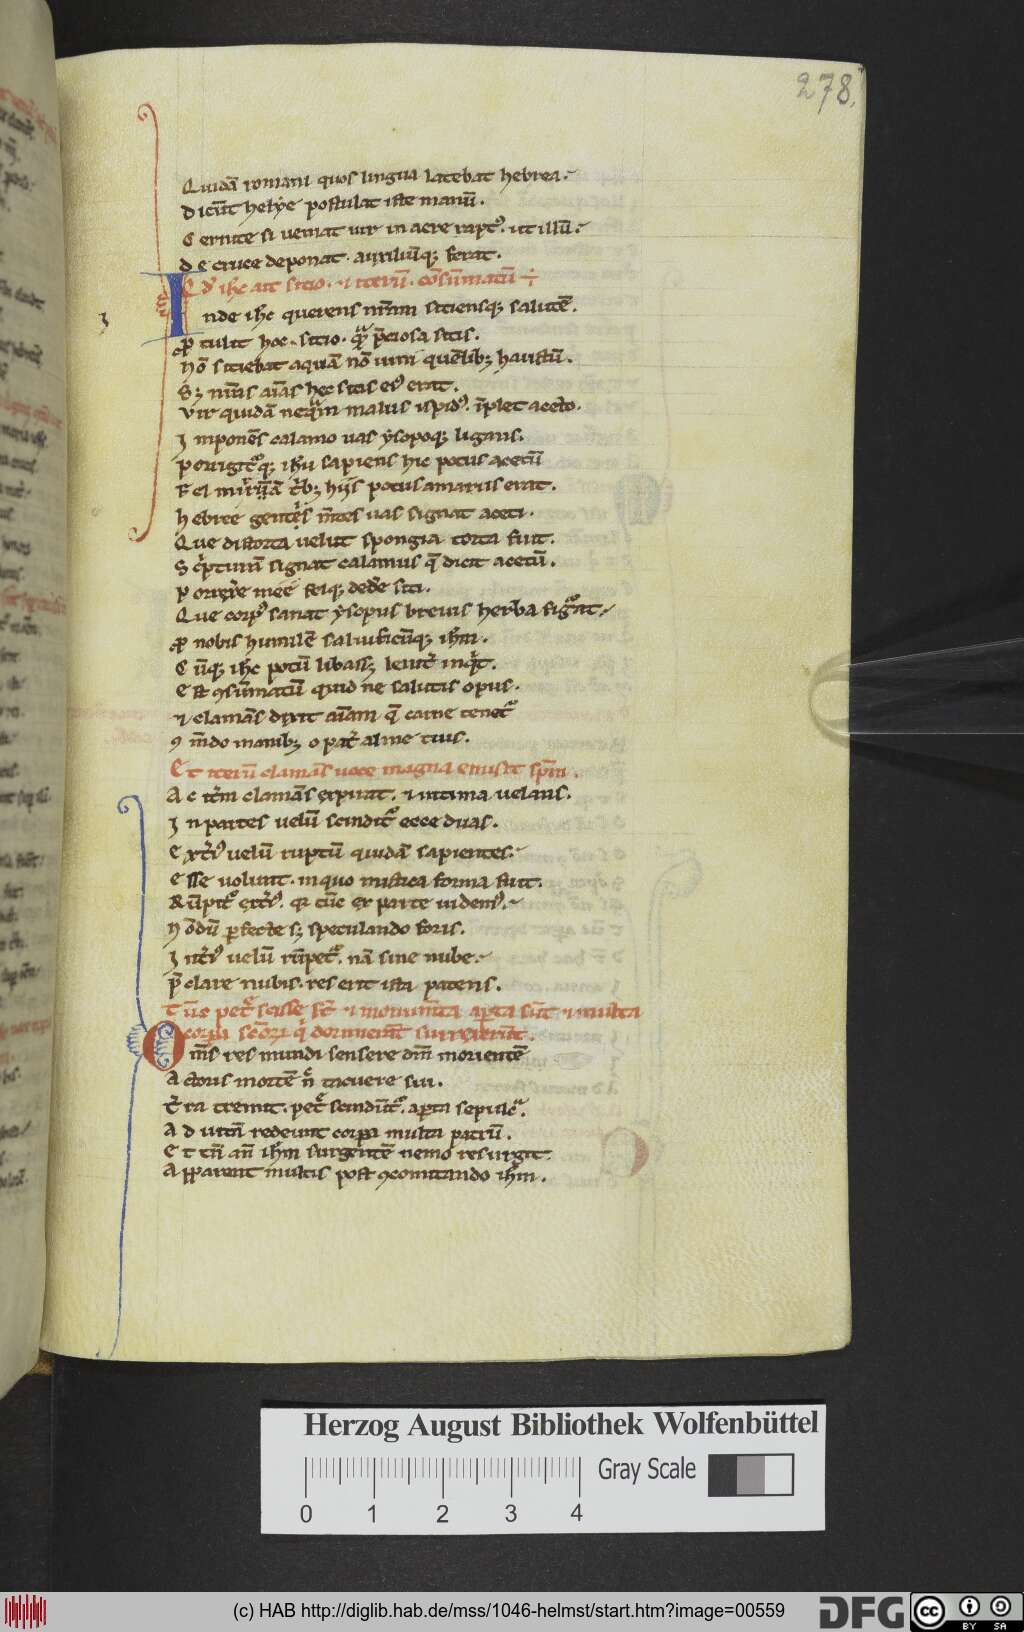 278.
Quidā romani quos lingua latebat hebrea.
Dicūt helye postulat iste manū.
Cernite si ueniat uir in aere rapt⁹. ut illū.
De cruce deponat. auxiliūq; ferat.
ait sitio. ⁊ iterū. cōsūmatū ÷
Inde ihc querens nr̄am sitiensq; salutē.
tulit hoc. sitio. p̄ciosa sitis.
Nō sitiebat aquā nō uini quēlib; haustū.
S; nr̄as aīas hec sitis ei⁹ erat.
Vir quidā malus īplet aceto.
Inponēs calamo uas ysopoq; ligans.
Porrigit᷑q; ihū sapiens hic potus acetū
Fel mirrā t̄b; hiis potus amarus erat.
Hebree gentes uas signat aceti.
Que distorta uelut spongia torta fuit.
Sc͛pturā signat calamus q̄ dicit acetū.
Porrige mee felq; dede siti.
Que corp⁹ sanat ysopus breuis herba figᷓat.
nobis humilē saluificūq; ihm.
Cūq; ihc potū libass; leuit͛ inqͥt.
Est ꝯsūmatū quid ne salutis opus.
⁊ clamās dixit aīam q̄ carne tenetᷣ
ꝯm̄do manib; o pat͛ alme tuis.
Et iterū clamās uoce magna emisit sp̄m.
Ac it͛m clamās expirat. ⁊ intima uelans.
In partes uelū scindit᷑ ecce duas.
Ext͛i⁹ uelū ruptū quidā sapientes.
Esse uolunt. in quo mistica forma fuit.
ext͛i⁹. tūc ex parte uidem⁹.
Nōdū ꝑfecte s; speculando foris.
Int͛i⁹ uelū rūpet᷑. nā sine nube.
P̄clare nubis. res erit ista patens.
Tūc petᷓ scisse sūt ⁊ monumēta aꝑta sūt ⁊ multa
corꝑa sc̄oꝝ qͥ dormierāt surrexerūt.
Om̄s res mundi sensere dn̄m morientē
Actoris mortē n̄ tacuere sui.
T͛ra tremit. petᷓ scindūt᷑. aꝑta sepulcᷓ.
Ad uitā redeunt corꝑa multa patrū.
Et tn̄ an̄ ihm surgentē nemo resurgit.
Apparent multis post ꝯcomitando ihm.
Herzog August Bibliothek Wolfenbüttel
Gray Scale
0 1 2 3 4
(c) HAB http://diglib.hab.de/mss/1046-helmst/start.htm?image=00559
DFG
cc BY SA